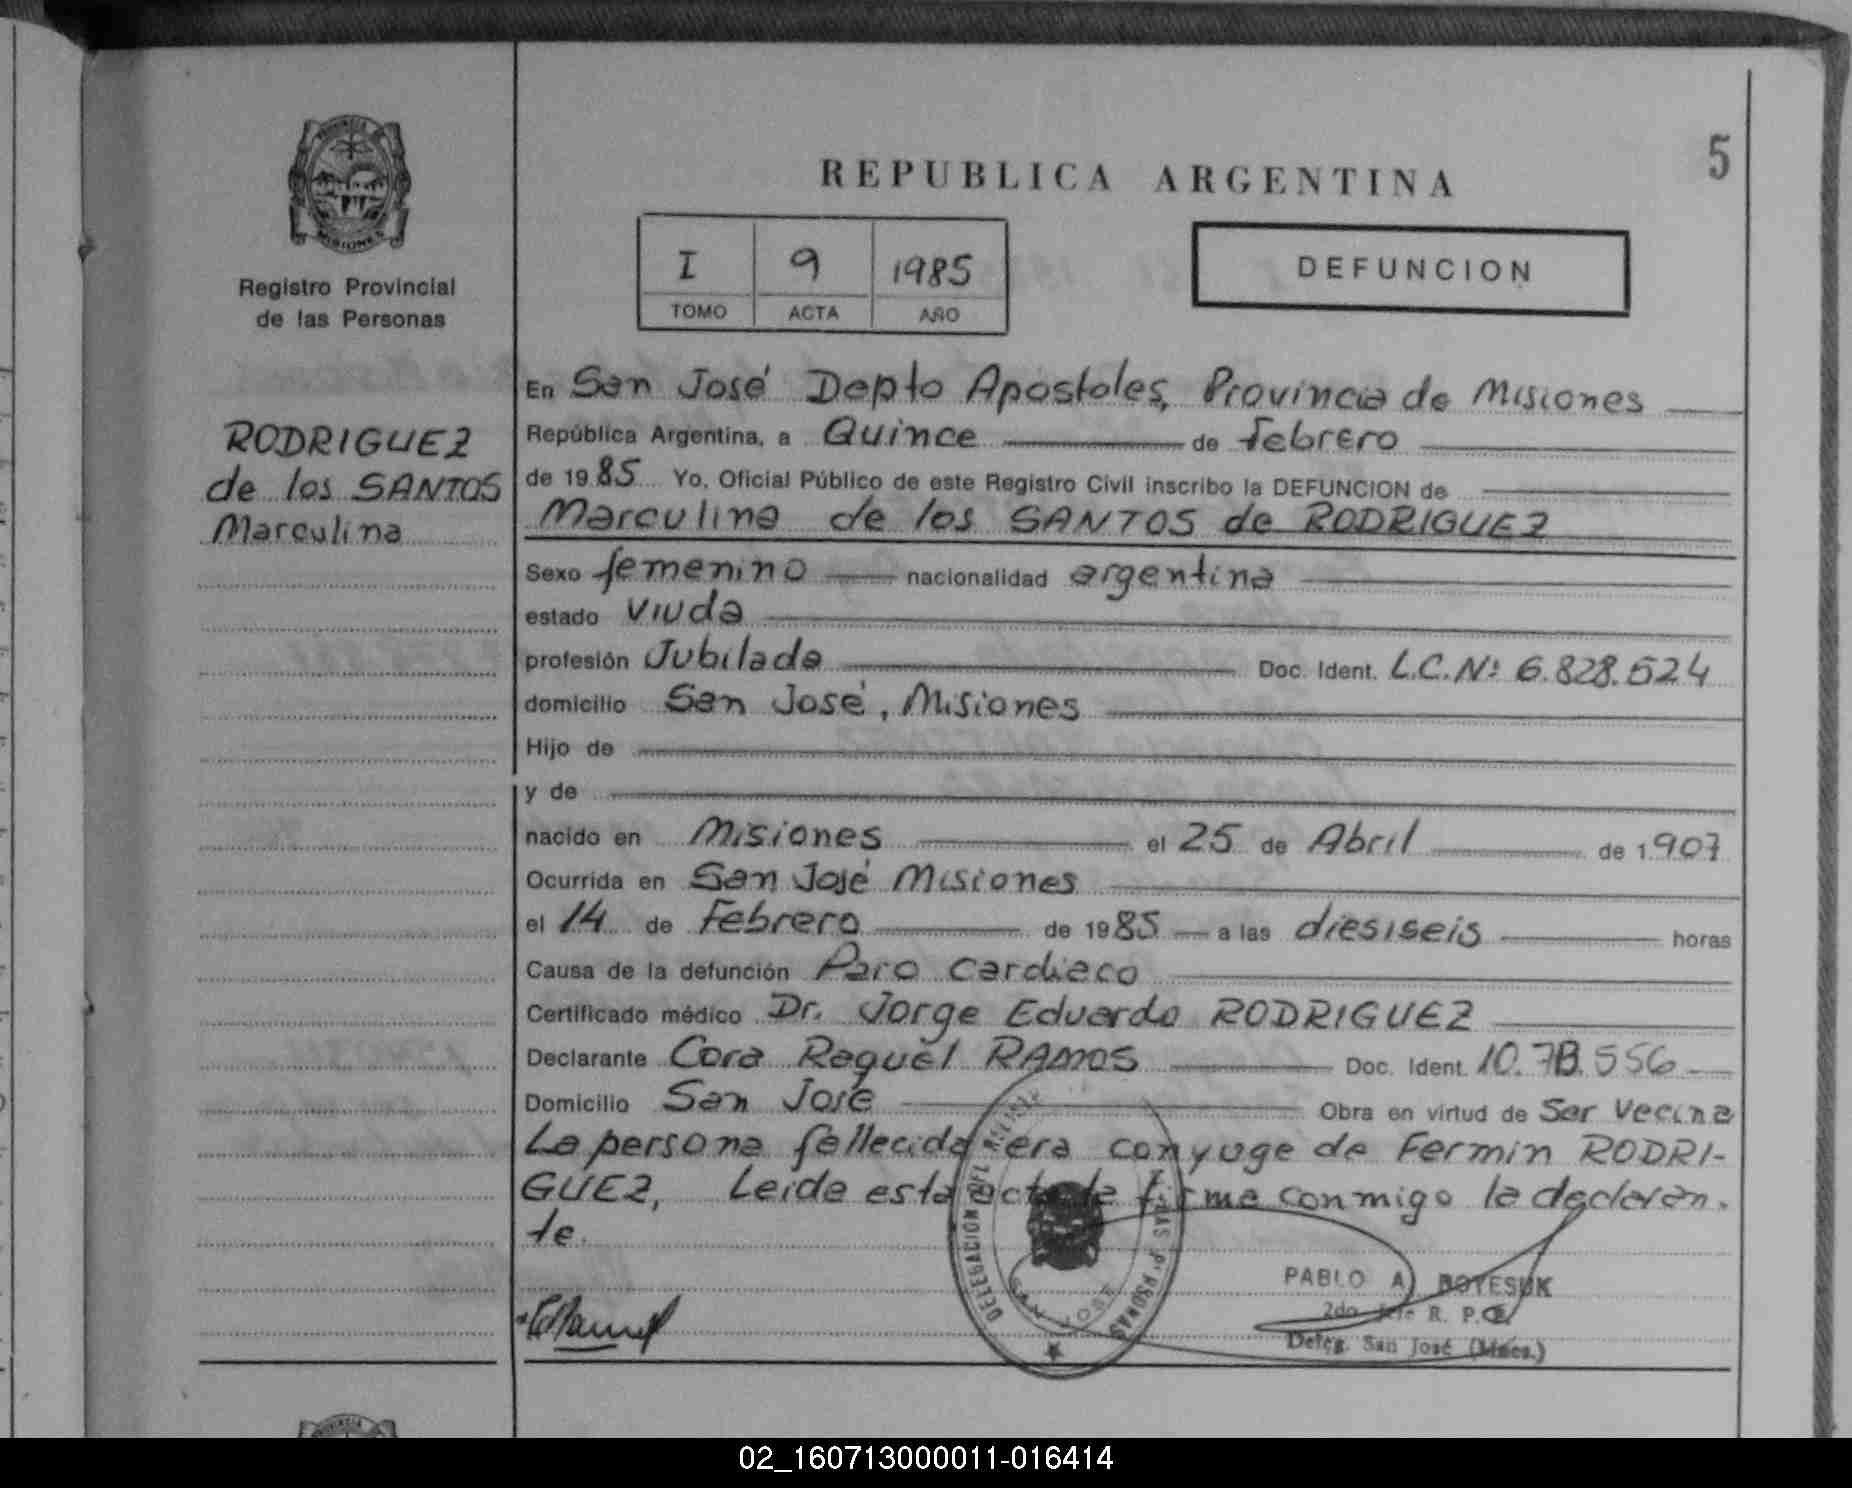 5
REPUBLICA ARGENTINA
PROVINCIA DE
MISIONES
Registro Provincial
de las Personas
I 9 1985
TOMO ACTA AÑO
DEFUNCION
RODRIGUEZ
de los SANTOS
Marculina
En San José Depto Apostoles, Provincia de Misiones
República Argentina, a Quince de febrero
de 1985 Yo, Oficial Público de este Registro Civil inscribo la DEFUNCION de
Marculina de los SANTOS de RODRIGUEZ
Sexo femenino nacionalidad argentina
estado Viuda
profesión Jubilada Doc. Ident. L.C.Nº 6.828.524
domicilio San José, Misiones
Hijo de
y de
nacido en Misiones el 25 de Abril de 1.907
Ocurrida en San José Misiones
el 14 de Febrero de 1985 a las diesiseis horas
Causa de la defunción Paro Cardiaco
Certificado médico Dr. Jorge Eduardo RODRIGUEZ
Declarante Cora Raquel RAMOS Doc. Ident.
Domicilio San José Obra en virtud de Ser Vecina
La persona fallecida era conyuge de Fermin RODRI-
GUEZ, Leida esta acta la firma conmigo la declaran-
te.
DELEGACION DEL PERSONAS
SAN JOSE
PABLO A. BOYESUK
2do Jefe R. P. P.
Deleg. San José (Mnes.)
02_160713000011-016414